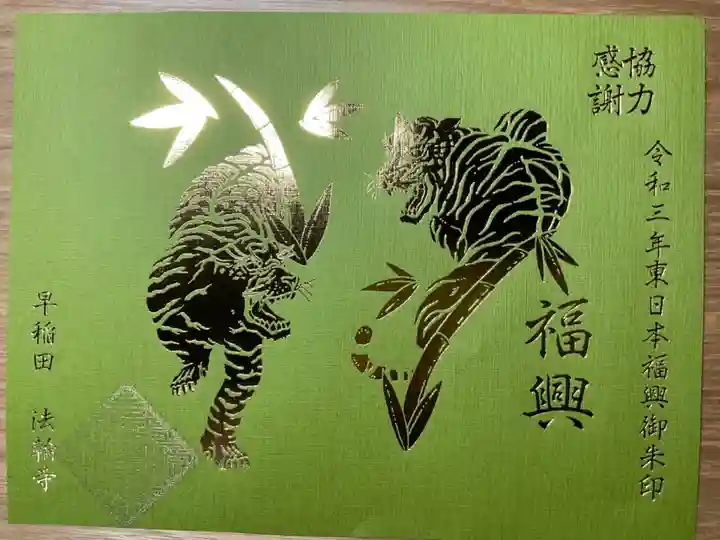 協力
感謝
令和三年東日本福興御朱印
福興
早稲田 法輪寺